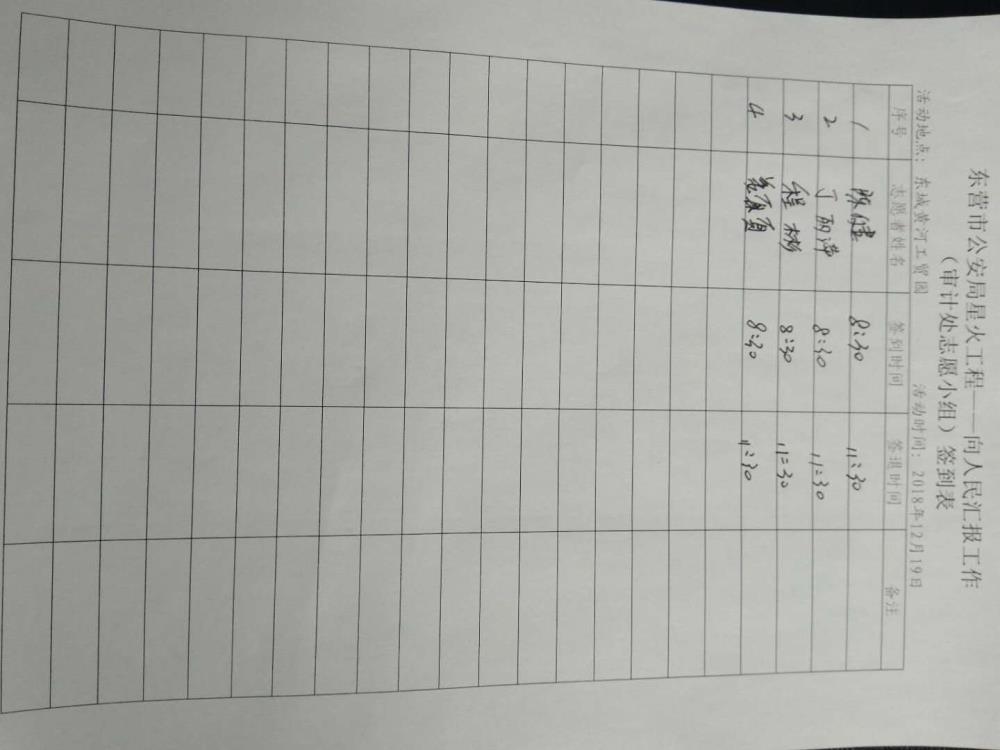 东营市公安局星火工程——向人民汇报工作
（审计处志愿小组）签到表
活动地点：东城黄河工贸园 活动时间：2018年12月19日
序号 志愿者姓名 签到时间 签退时间 备注
1 陈健 8:30 11:30
2 丁丽萍 8:30 11:30
3 程彬 8:30 11:30
4 8:30 11:30